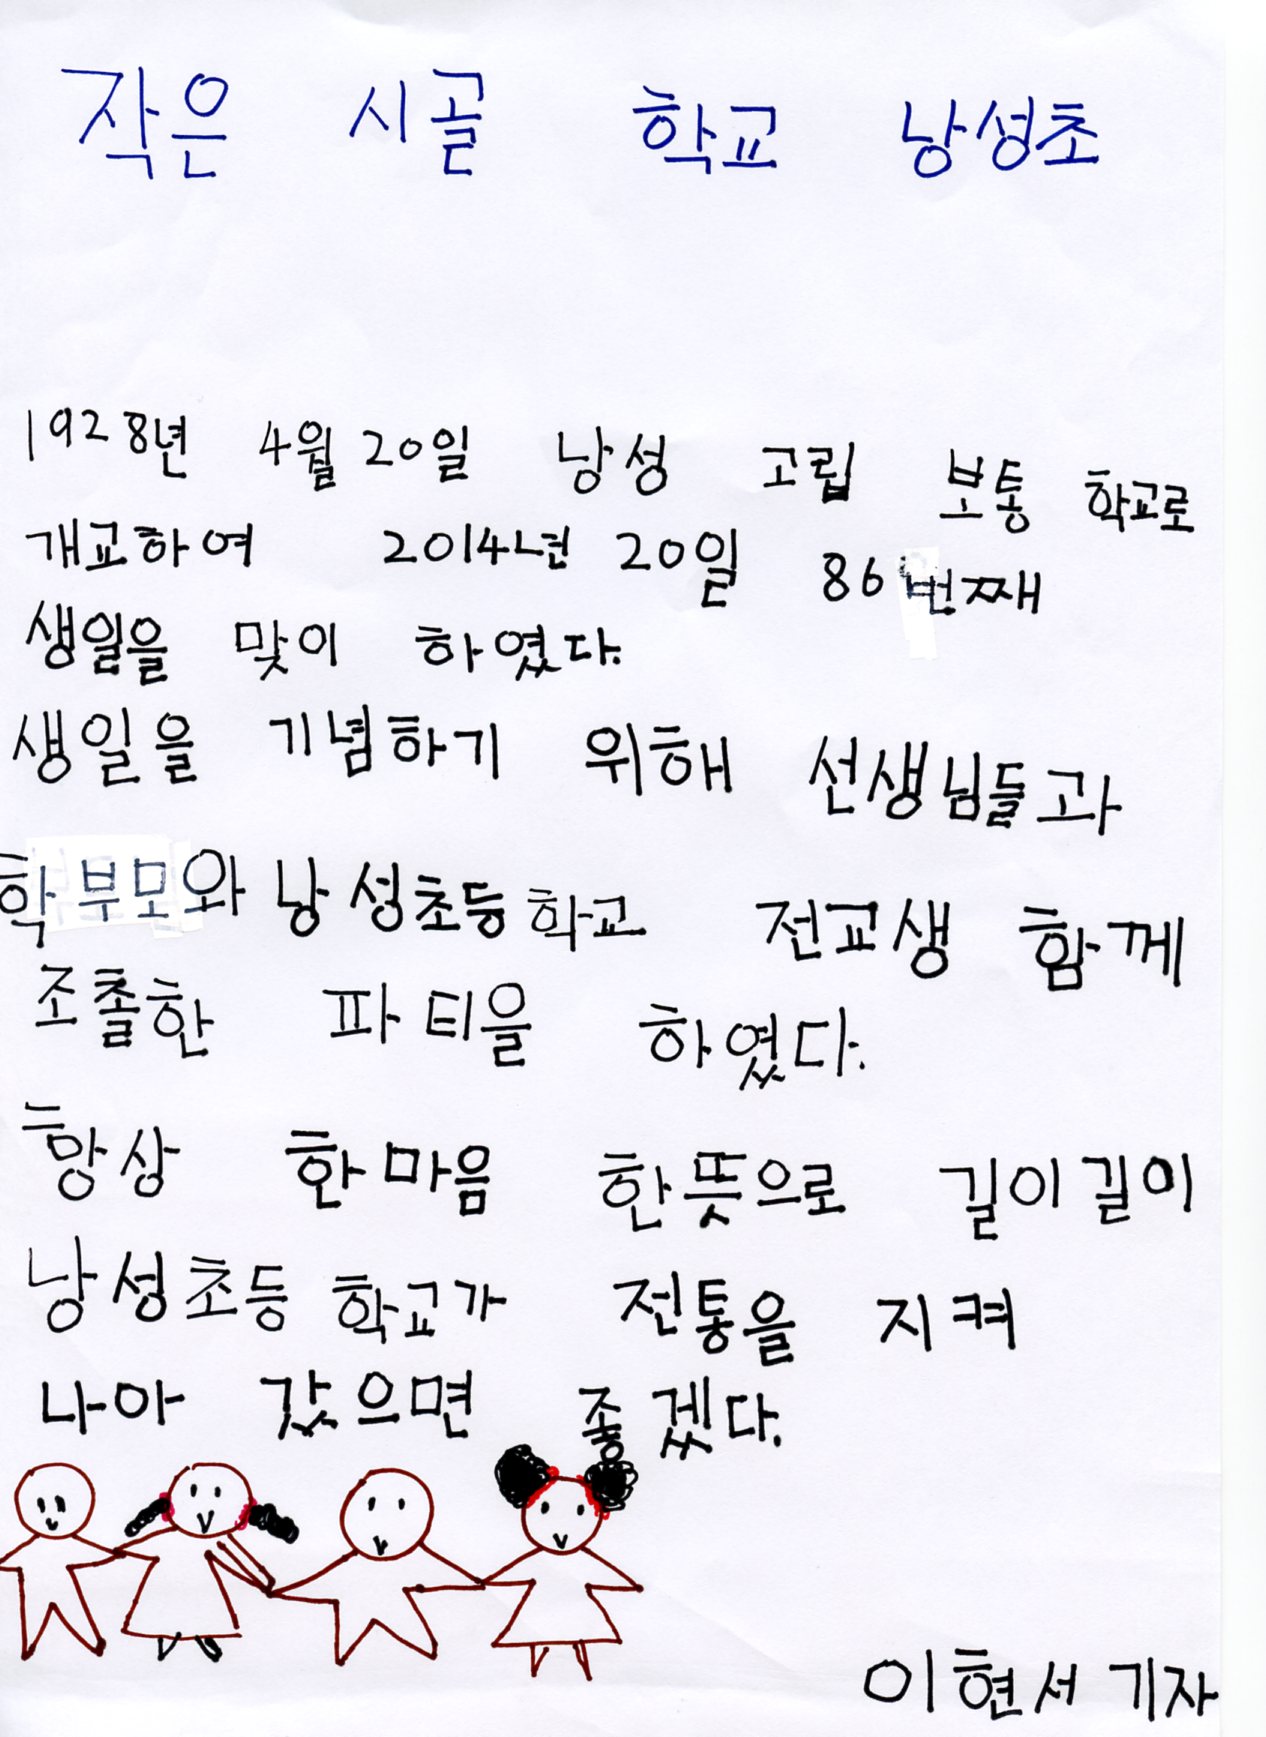 작은 시골 학교 낭성초
1928년 4월 20일 낭성 고립 보통 학교로
개교하여 2014년 20일 86번째
생일을 맞이 하였다.
생일을 기념하기 위해 선생님들과
학부모와 낭성초등학교 전교생 함께
조촐한 파티을 하였다.
항상 한마음 한뜻으로 길이길이
낭성초등 학교가 전통을 지켜
나아 갔으면 좋겠다.
이현서 기자